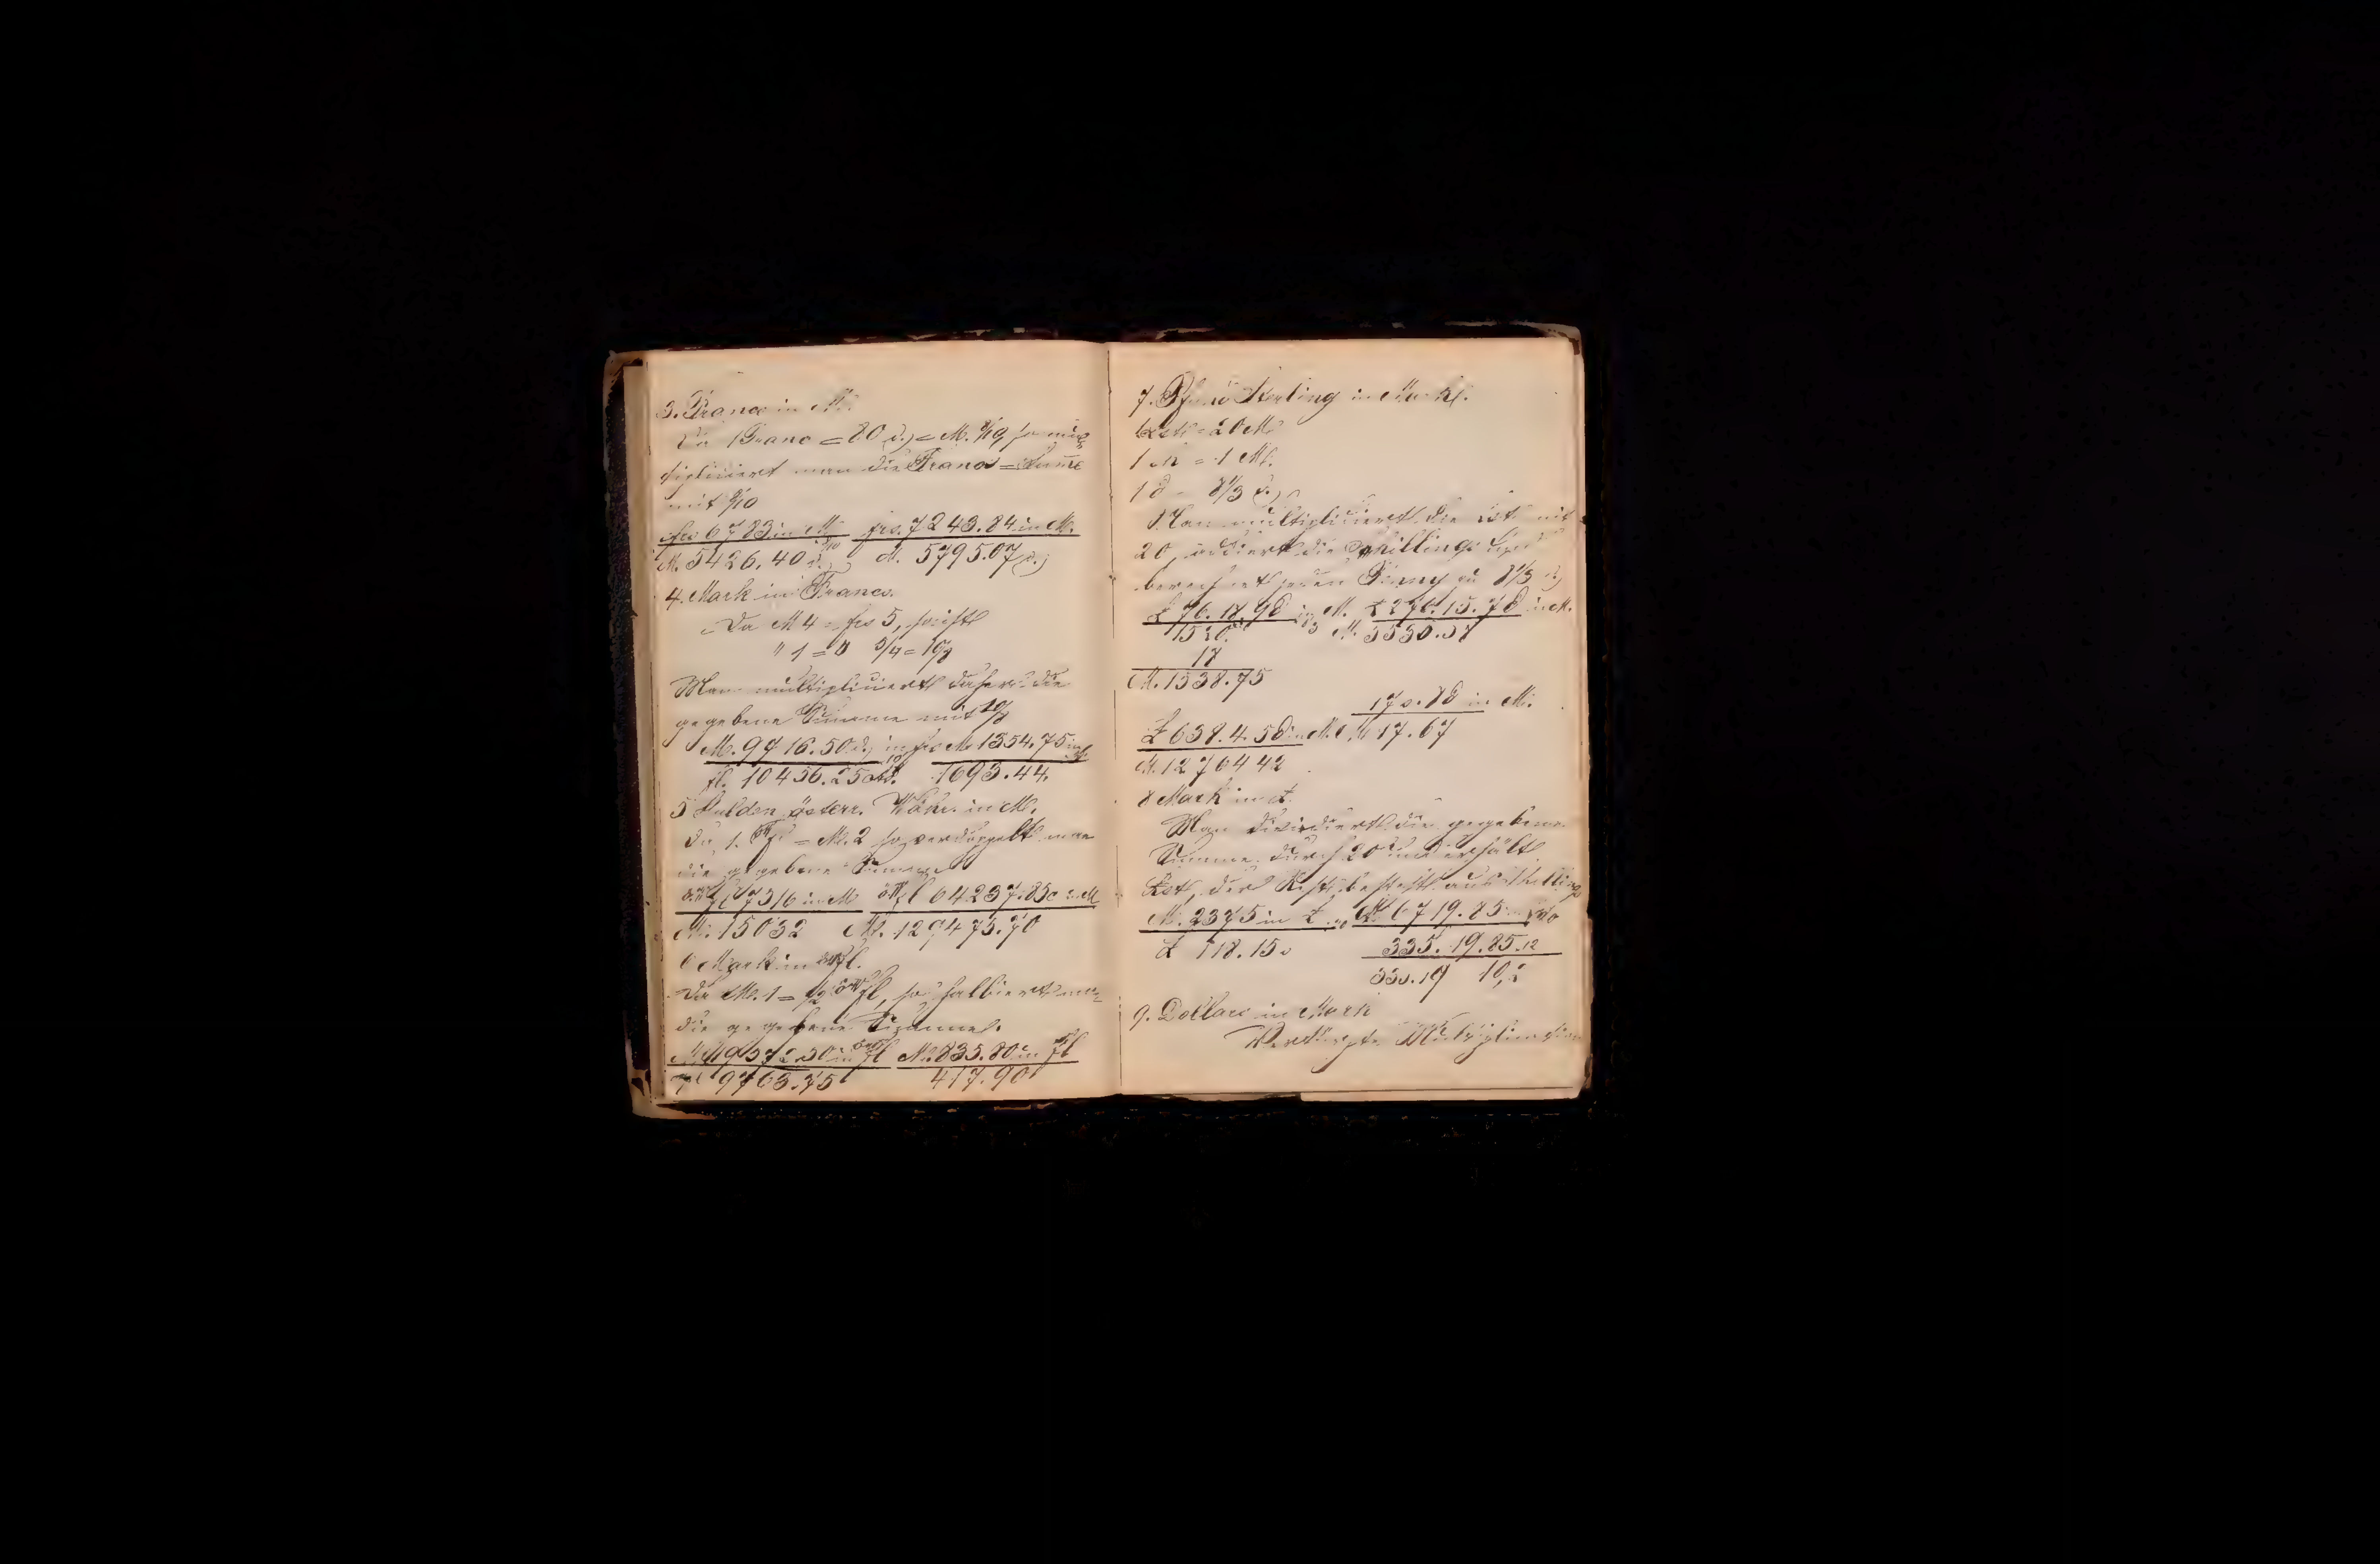 3. Francs in M.
Da 1 Franc = 80 ₰ = M. 8/10 so mul
tipliciert man die Francs = Summe
mit 8/10
frs 6783 in M. frs. 7243.84 in M.
M. 5426.40 ₰ M. 5795.07 ₰
4. Mark in Francs.
Da M 4 = frs 5, so ist
" 1 = " 5/4 = 10/8
Man multipliciert daher die
gegebene Summe mit 10/8
M. 9716.50 ₰ in frs M 1354.75 in
fl. 10456.25 1693.44.
5 Gulden österr. Währ. in M.
Da 1. = M. 2 so verdoppelt man
die gegebene Summe
ö.W fl 7516 in M öW fl 64237.85 in M
M. 15032 M. 128475.70
6 Mark in öW fl.
Da M. 1 = 1/2 öW fl, so halbiert man
die gegebene Summe.
M. 19572.50 in öW fl M. 835.80 in fl
fl 9763.75 417.90
7. Pfund Sterling in Mark.
1 £stl = 20 M
1 = 1 M.
1 d = 8 1/3 ₰
Man multipliciert die £st mit
20, addiert die Schillinge und
berechnet jeden Penny zu 8 1/3 ₰
£ 76.18.9d in M. £ 276.15.7d in M.
1520. M. 5530.57
18
M. 1538.75
17 s. 8d in M.
£ 638.4.5d in M. M 17.67
M. 1276442
8 Mark in £.
Man dividiert die gegebene
Summe durch 20 und erhält
£st, der Rest besteht aus Shillings
M. 2375 in £ M. 6719.85
£ 118.15 s 335.19.85.12
335.19 10,2
9. Dollars in Mark
Verkürzte Multiplication